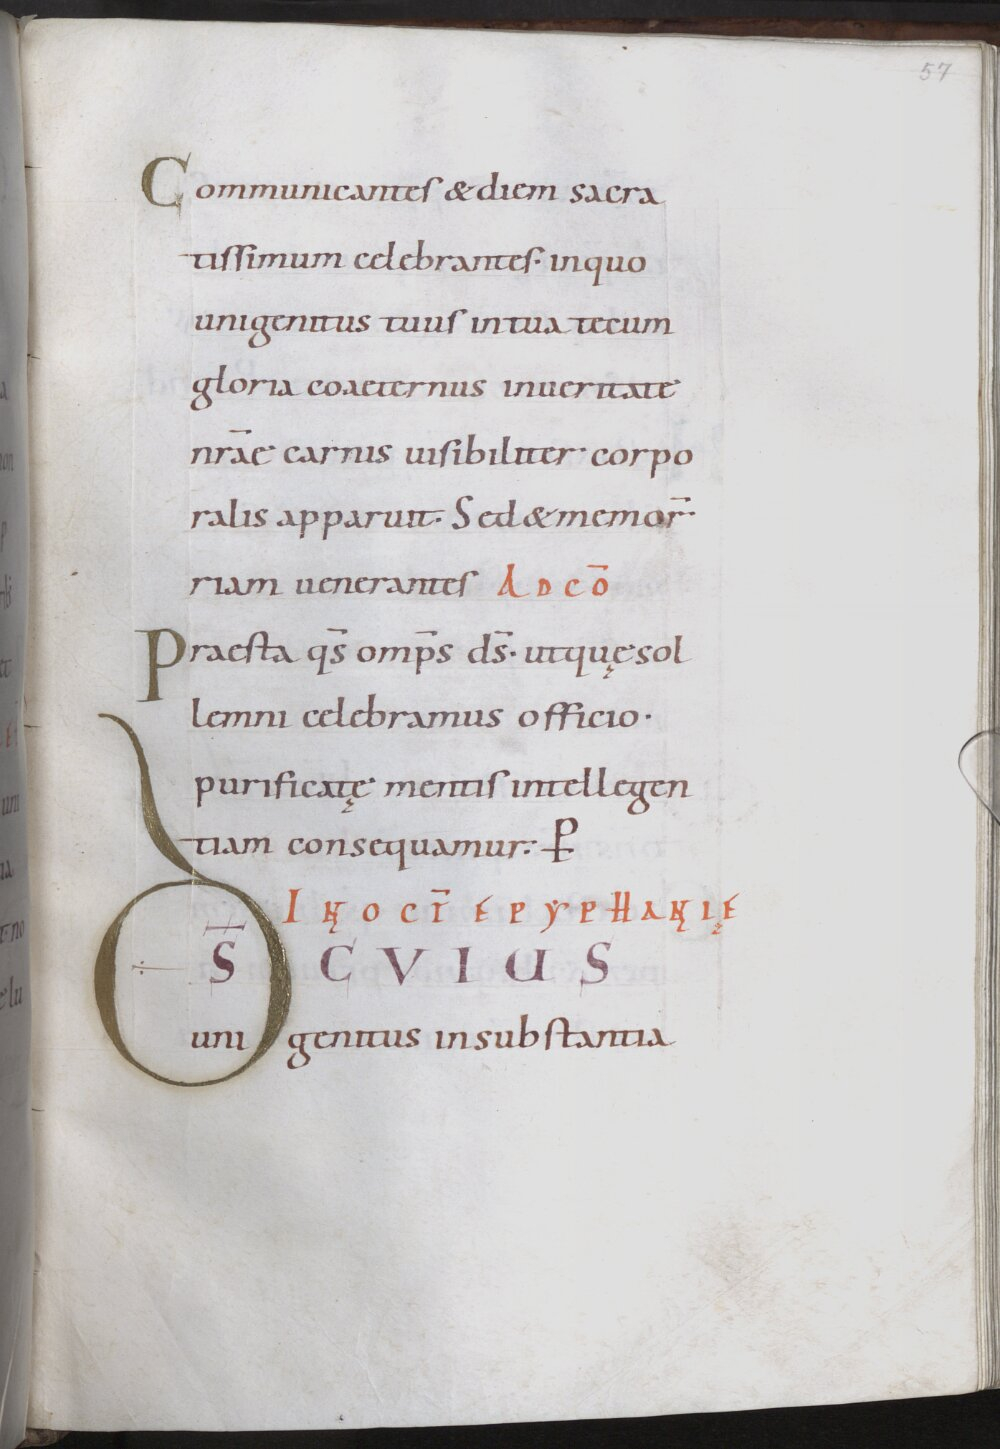 57
Communicantes & diem sacra
tissimum celebrantes· inquo
unigenitus tuus intua tecum
gloria coaeternus inueritate
nr̄ae carnis uisibiliter corpo
ralis apparuit· Sed & memor̄
riam uenerantes AD CŌ
Praesta qs̄ omp̄s ds̄· utquę sol
lemni celebramus officio·
purificatę mentis intellegen
tiam consequamur· P
IN OCT̄ EPYPHANIĘ
DS̄ CVIUS
unigenitus insubstantia